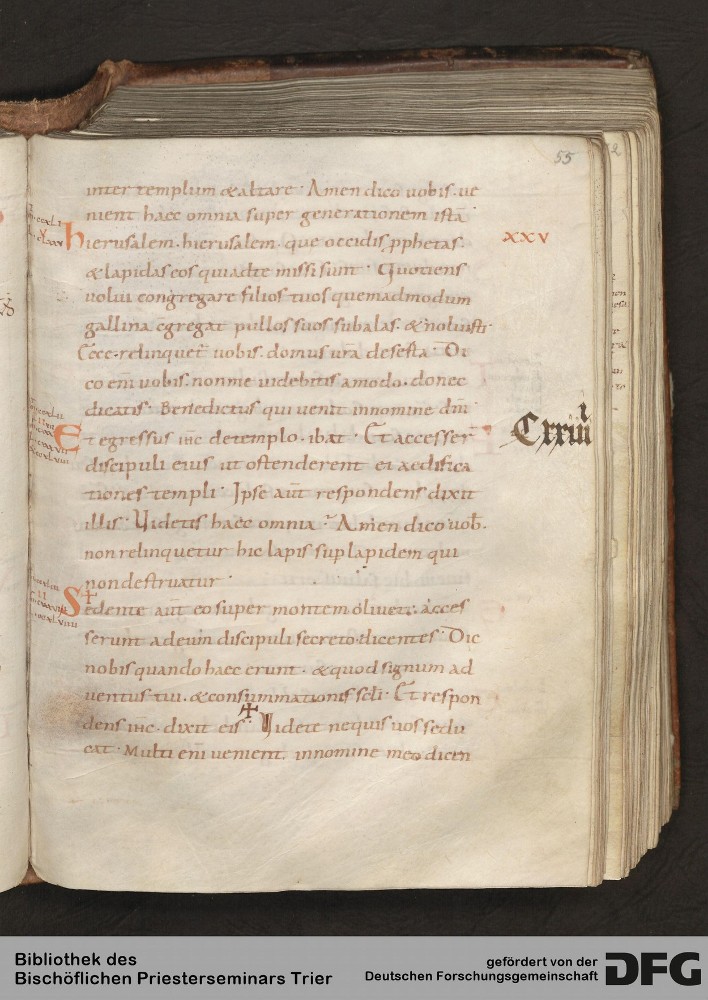 55
inter templum &altare · Amen dico uobis · ue
nient haec omnia super generationem istā
hierusalem · hierusalem · que occidis pphetas ·
&lapidas eos qui adte missi sunt · Quotiens
XXV
uolui congregare filios tuos quemadmodum
gallina cgregat pullos suos subalas · &noluisti
Ecce · relinquet uobis · domus urā deserta · Di
co enī uobis · nonme uidebitis amodo · donec
dicatis · Benedictus qui uenit innomine dnī
Et egressus ihc detemplo · ibat · Et accesser
Cxxiiii
discipuli eius ut ostenderent ei aedifica
tiones templi · Ipse aūt respondens dixit
illis · Uidetis haec omnia · Amen dico uob ·
non relinquetur hic lapis suplapidem qui
non destruatur ·
Sedente aūt eo super montem oliueti · acces
serunt adeum discipuli secreto dicentes · Dic
nobis quando haec erunt · &quod signum ad
uentus tui · &consummationis scli · Et respon
dens ihc · dixit eis · Uidete nequis uos sedu
cat · Multi enī uenient · innomine meo dicen
Bibliothek des
Bischöflichen Priesterseminars Trier
gefördert von der
Deutschen Forschungsgemeinschaft
DFG